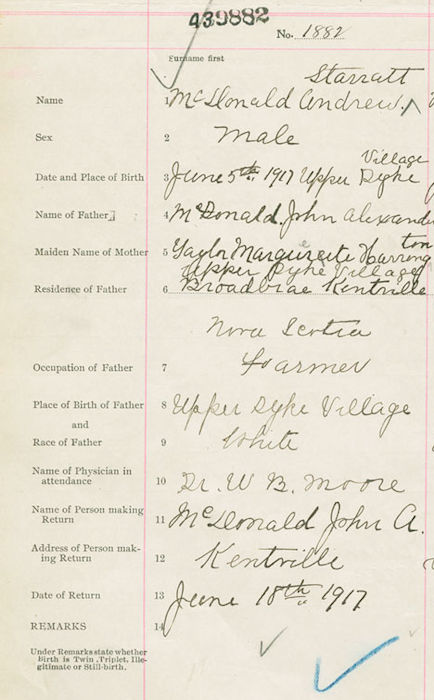 439882
No. 1882
Surname first
Starratt
Name 1 McDonald Andrew.
Sex 2 Male
Village
Date and Place of Birth 3 June 5th 1917 Upper Dyke
Name of Father 4 McDonald. John Alexande
ton
Maiden Name of Mother 5 Taylor Marguerite Harring
Upper Dyke Village
Residence of Father 6 Broadbrae Kentville
Nova Scotia
Occupation of Father 7 Farmer
Place of Birth of Father 8 Upper Dyke Village
and
Race of Father 9 White
Name of Physician in
attendance 10 Dr. W B. Moore
Name of Person making
Return 11 McDonald John A.
Address of Person mak-
ing Return 12 Kentville
Date of Return 13 June 18th 1917
REMARKS 14
Under Remarks state whether
Birth is Twin, Triplet, Ille-
gitimate or Still-birth.